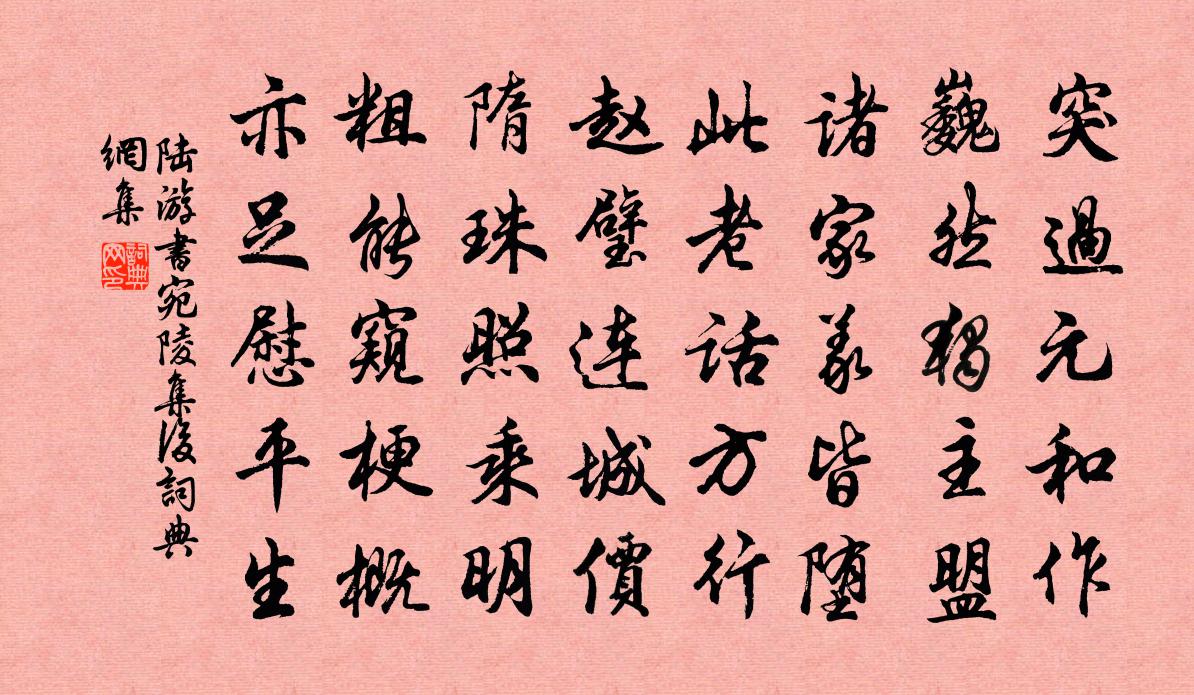 突過元和作
巍然獨主盟
诸家義皆堕
此老话方行
赵璧连城價
隋珠照乘明
粗能窺梗概
亦足慰平生
陆游書宛陵集後詞典
網集
詞典网印